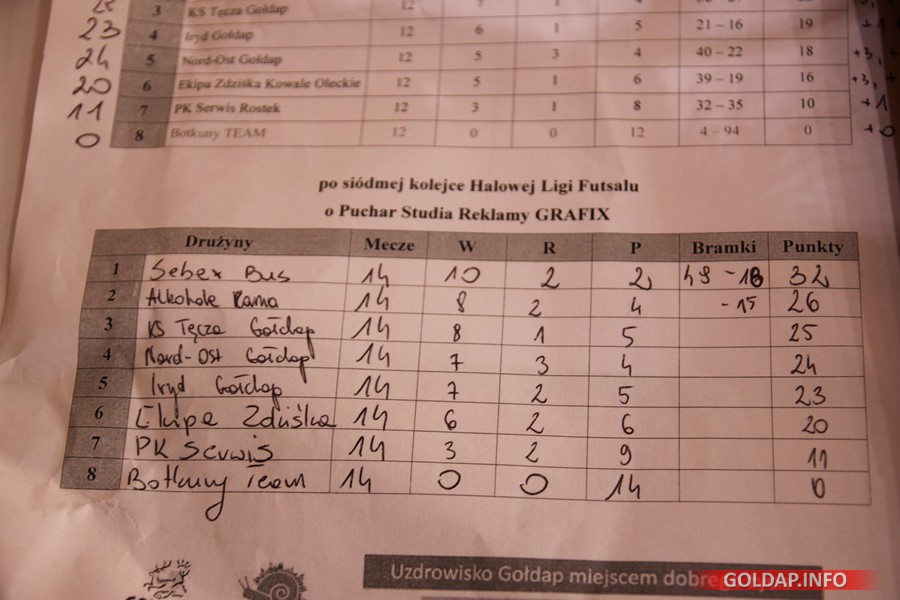 25
3 KS Tęcza Gołdap 12 7 1
23 4 Iryd Gołdap 12 6 1 5 21 – 16 19
24 5 Nord-Ost Gołdap 12 5 3 4 40 – 22 18 +3,
20 6 Ekipa Zdziśka Kowale Oleckie 12 5 1 6 39 – 19 16 +3,
11 7 PK Serwis Rostek 12 3 1 8 32 – 35 10 +1
0 8 Botkuny TEAM 12 0 0 12 4 – 94 0 +0
po siódmej kolejce Halowej Ligi Futsalu
o Puchar Studia Reklamy GRAFIX
Drużyny Mecze W R P Bramki Punkty
1 Sebex Bus 14 10 2 2 49 - 18 32
2 Alkohole Rama 14 8 2 4 - 15 26
3 KS Tęcza Gołdap 14 8 1 5 25
4 Nord-Ost Gołdap 14 7 3 4 24
5 Iryd Gołdap 14 7 2 5 23
6 Ekipa Zdziśka 14 6 2 6 20
7 PK Serwis 14 3 2 9 11
8 Botkuny Team 14 0 0 14 0
Uzdrowisko Gołdap miejscem dobre
GOLDAP.INFO